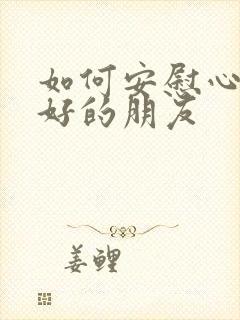 如何安慰心
好的朋友
姜鲤